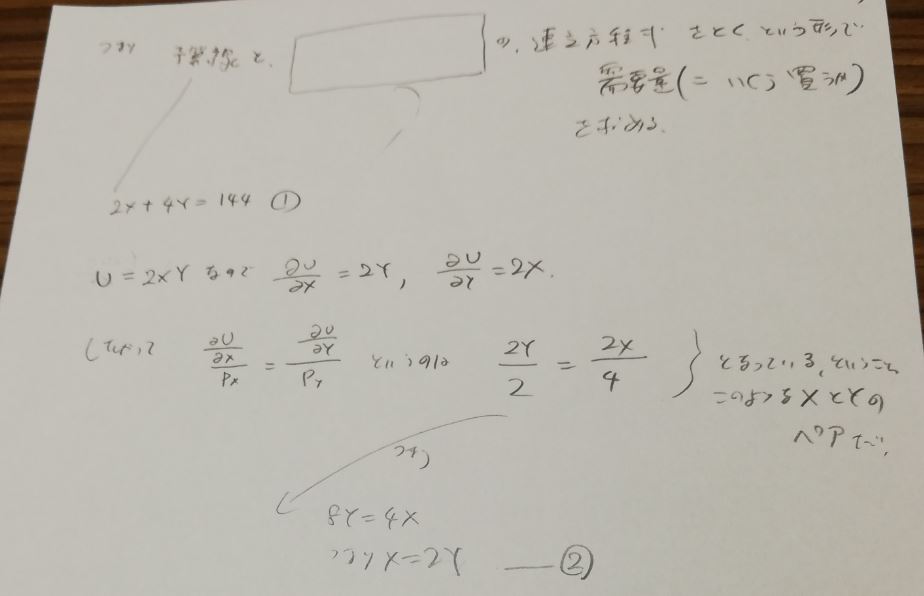 つまり 予算線と、 の、連立方程式をとく、という形で
需要量(=いくつ買うか)
を求める。
2X+4Y=144 ①
U=2XY なので ∂U/∂X=2Y, ∂U/∂Y=2X.
したがって (∂U/∂X)/Px = (∂U/∂Y)/PY というのは 2Y/2 = 2X/4 } となっている、ということ
このようなXとYの
ペアで、
8Y=4X
つまりX=2Y ― ②